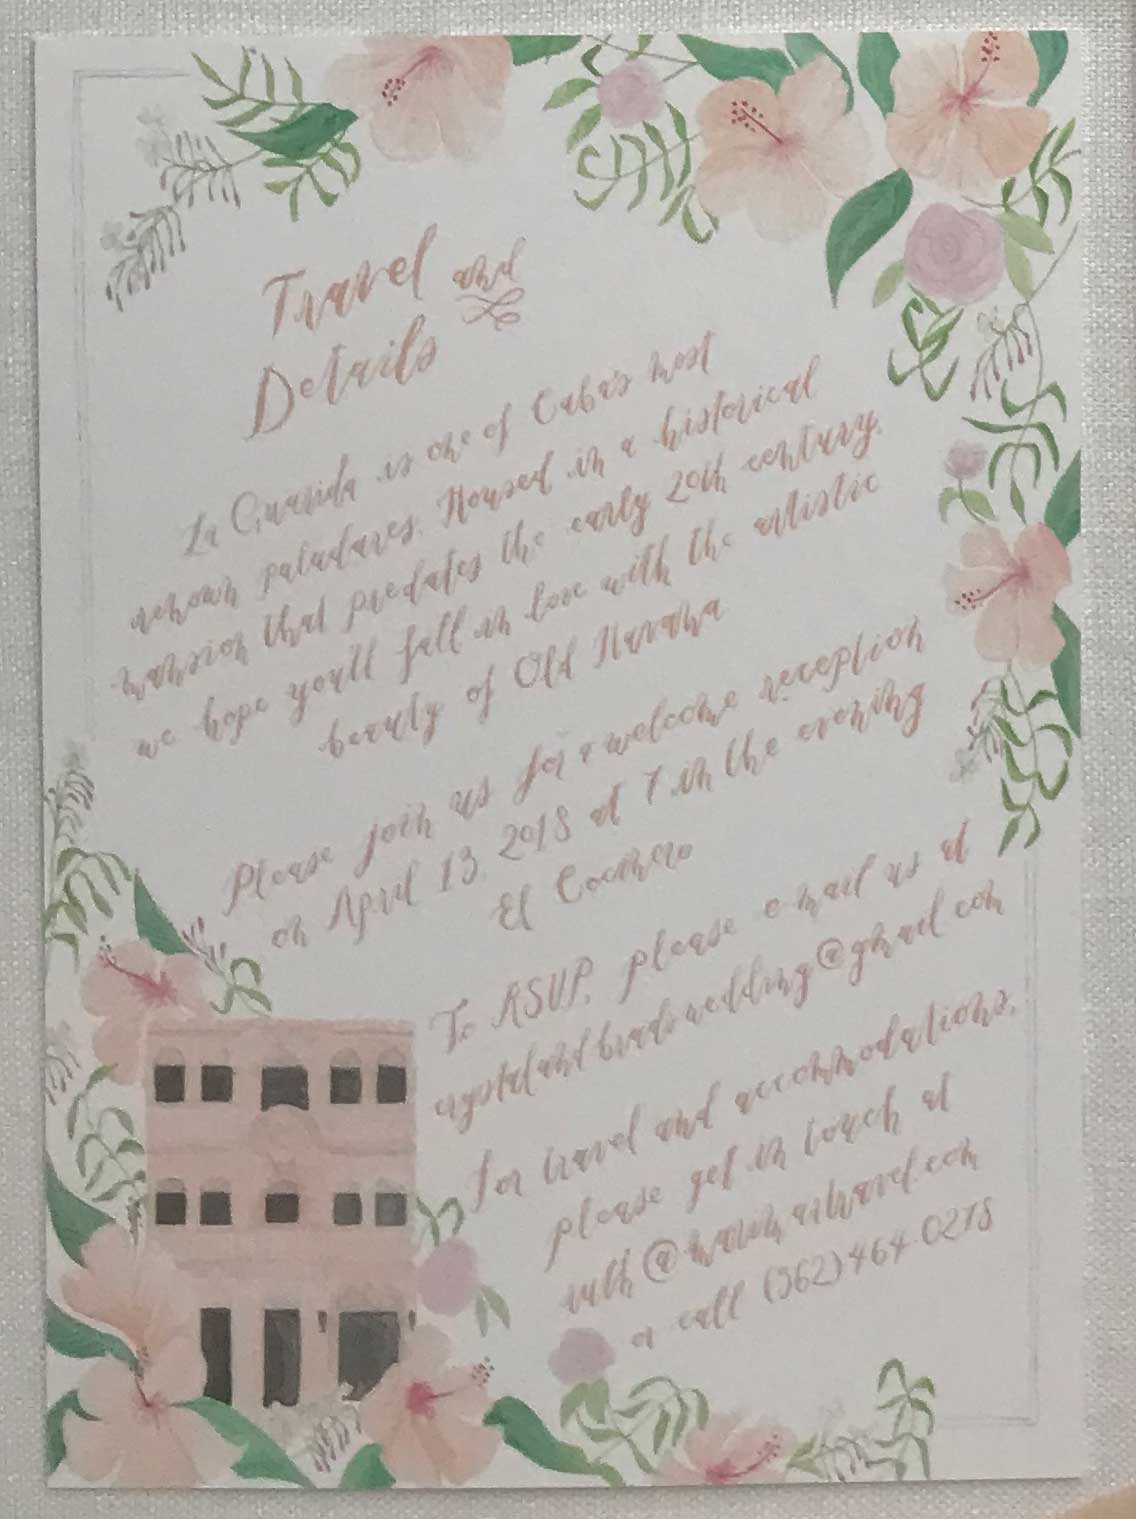 Travel and
Details
La Guarida is one of Cuba's most
renown paladares. Housed in a historical
mansion that predates the early 20th century,
we hope you'll fall in love with the artistic
beauty of Old Havana
Please join us for a welcome reception
on April 13, 2018 at 7 in the evening
El Cocinero
To RSVP, please e-mail us at
crystalandbradswedding@gmail.com
for travel and accommodations,
please get in touch at
or call (562) 464-0278